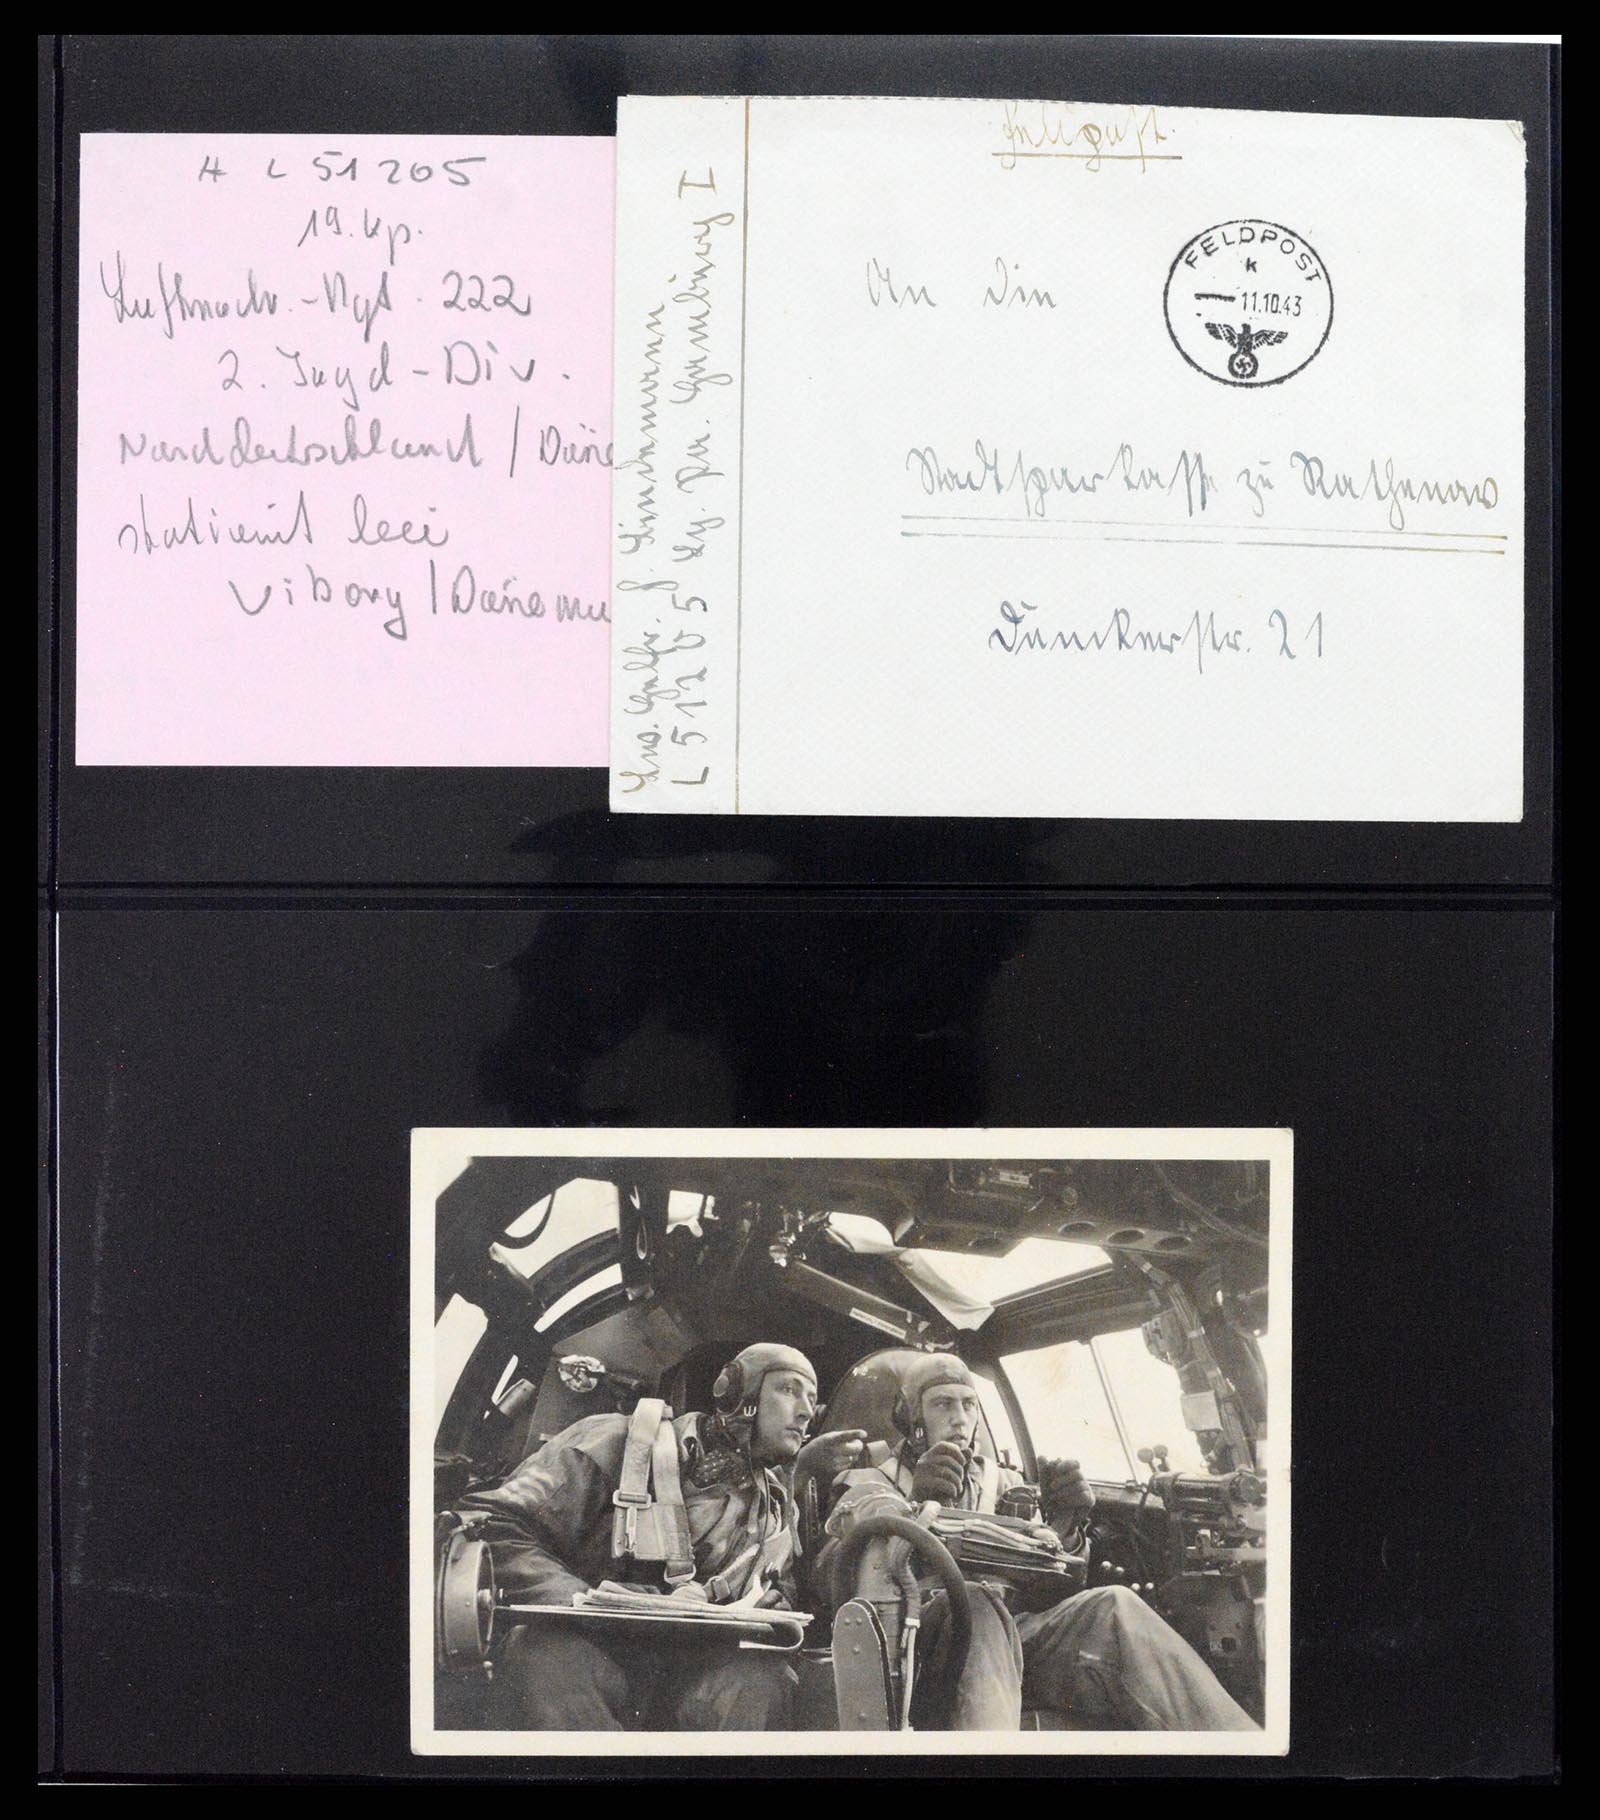 # L 51 205
19. Kp.
Luftnachr.-Rgt. 222
2. Jagd-Div.
Norddeutschland / Däne
stationiert bei
Viborg / Dänema
Feldpost.
FELDPOST
k
11.10.43
An die
Stadtsparkasse zu Rathenow
Dunckerstr. 21
Lindemann
L 51205 Lg. Pa. Hamburg I